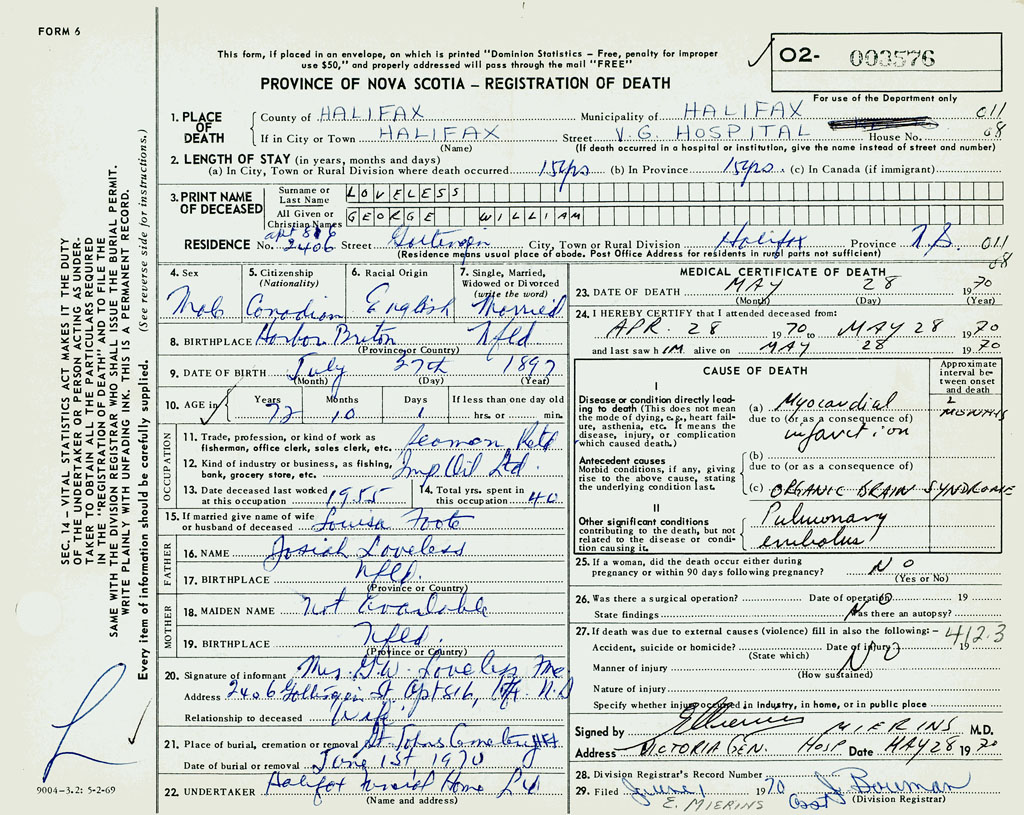 FORM 6
This form, if placed in an envelope, on which is printed "Dominion Statistics – Free, penalty for improper
use $50," and properly addressed will pass through the mail "FREE"
PROVINCE OF NOVA SCOTIA – REGISTRATION OF DEATH
02- 003576
For use of the Department only
1. PLACE OF DEATH
County of HALIFAX Municipality of HALIFAX 011
If in City or Town HALIFAX Street V.G. HOSPITAL House No. 08
(Name) (If death occurred in a hospital or institution, give the name instead of street and number)
2. LENGTH OF STAY (in years, months and days)
(a) In City, Town or Rural Division where death occurred 15 yrs (b) In Province 15 yrs. (c) In Canada (if immigrant)
3. PRINT NAME OF DECEASED
Surname or Last Name LOVELESS
All Given or Christian Names GEORGE WILLIAM
apt 816
RESIDENCE No. 2406 Street Gottingen City, Town or Rural Division Halifax Province N.S. 011
(Residence means usual place of abode. Post Office Address for residents in rural parts not sufficient) 08
4. Sex Male
5. Citizenship (Nationality) Canadian
6. Racial Origin English
7. Single, Married, Widowed or Divorced (write the word) Married
8. BIRTHPLACE Harbor Breton Nfld
(Province or Country)
9. DATE OF BIRTH July 27th 1897
(Month) (Day) (Year)
10. AGE in Years 72 Months 10 Days 1 If less than one day old hrs. or min.
OCCUPATION
11. Trade, profession, or kind of work as fisherman, office clerk, sales clerk, etc. Seaman Retd
12. Kind of industry or business, as fishing, bank, grocery store, etc. Imp Oil Ltd.
13. Date deceased last worked at this occupation 1955
14. Total yrs. spent in this occupation 40
15. If married give name of wife or husband of deceased Louisa Foote
FATHER
16. NAME Josiah Loveless
17. BIRTHPLACE Nfld.
(Province or Country)
MOTHER
18. MAIDEN NAME Not Available
19. BIRTHPLACE Nfld.
(Province or Country)
20. Signature of informant Mrs. G.W. Loveless
Address 2406 Gottingen St Apt 816, Hfx. N.S
Relationship to deceased Wife
21. Place of burial, cremation or removal St Johns Cemetery Hfx
Date of burial or removal June 1st 1970
22. UNDERTAKER Halifax Funeral Home Ltd
(Name and address)
MEDICAL CERTIFICATE OF DEATH
23. DATE OF DEATH MAY 28 1970
(Month) (Day) (Year)
24. I HEREBY CERTIFY that I attended deceased from:
APR. 28 1970 to MAY 28 1970
and last saw h IM alive on MAY 28 1970
CAUSE OF DEATH
Approximate interval between onset and death
I
Disease or condition directly leading to death (This does not mean the mode of dying, e.g., heart failure, asthenia, etc. It means the disease, injury, or complication which caused death.)
(a) Myocardial
due to (or as a consequence of)
infarction
2 MONTHS
Antecedent causes
Morbid conditions, if any, giving rise to the above cause, stating the underlying condition last.
(b)
due to (or as a consequence of)
(c) ORGANIC BRAIN SYNDROME
II
Other significant conditions contributing to the death, but not related to the disease or condition causing it.
Pulmonary
embolus
25. If a woman, did the death occur either during pregnancy or within 90 days following pregnancy? NO
(Yes or No)
26. Was there a surgical operation? Date of operation 19
State findings Was there an autopsy?
27. If death was due to external causes (violence) fill in also the following:– 412.3
Accident, suicide or homicide? Date of injury 19
(State which) NO
Manner of injury
(How sustained)
Nature of injury
Specify whether injury occurred in industry, in home, or in public place
Signed by E Mierins MIERINS M.D.
Address VICTORIA GEN. HOSP Date MAY 28 1970
28. Division Registrar's Record Number
29. Filed June 1 1970 J. Bowman
E. MIERINS Asst (Division Registrar)
SEC. 14 – VITAL STATISTICS ACT MAKES IT THE DUTY
OF THE UNDERTAKER OR PERSON ACTING AS UNDER-
TAKER TO OBTAIN ALL THE PARTICULARS REQUIRED
IN THE "REGISTRATION OF DEATH" AND TO FILE THE
SAME WITH THE DIVISION REGISTRAR WHO SHALL ISSUE THE BURIAL PERMIT.
WRITE PLAINLY WITH UNFADING INK. THIS IS A PERMANENT RECORD.
Every item of information should be carefully supplied. (See reverse side for instructions.)
9004-3.2: 5-2-69